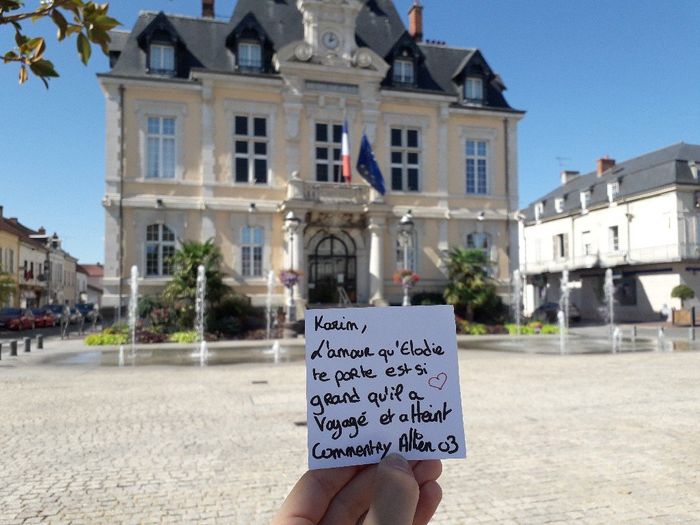 Karim,
L'amour qu'Elodie
te porte est si
grand qu'il a
voyagé et atteint
Commentry Allier 03